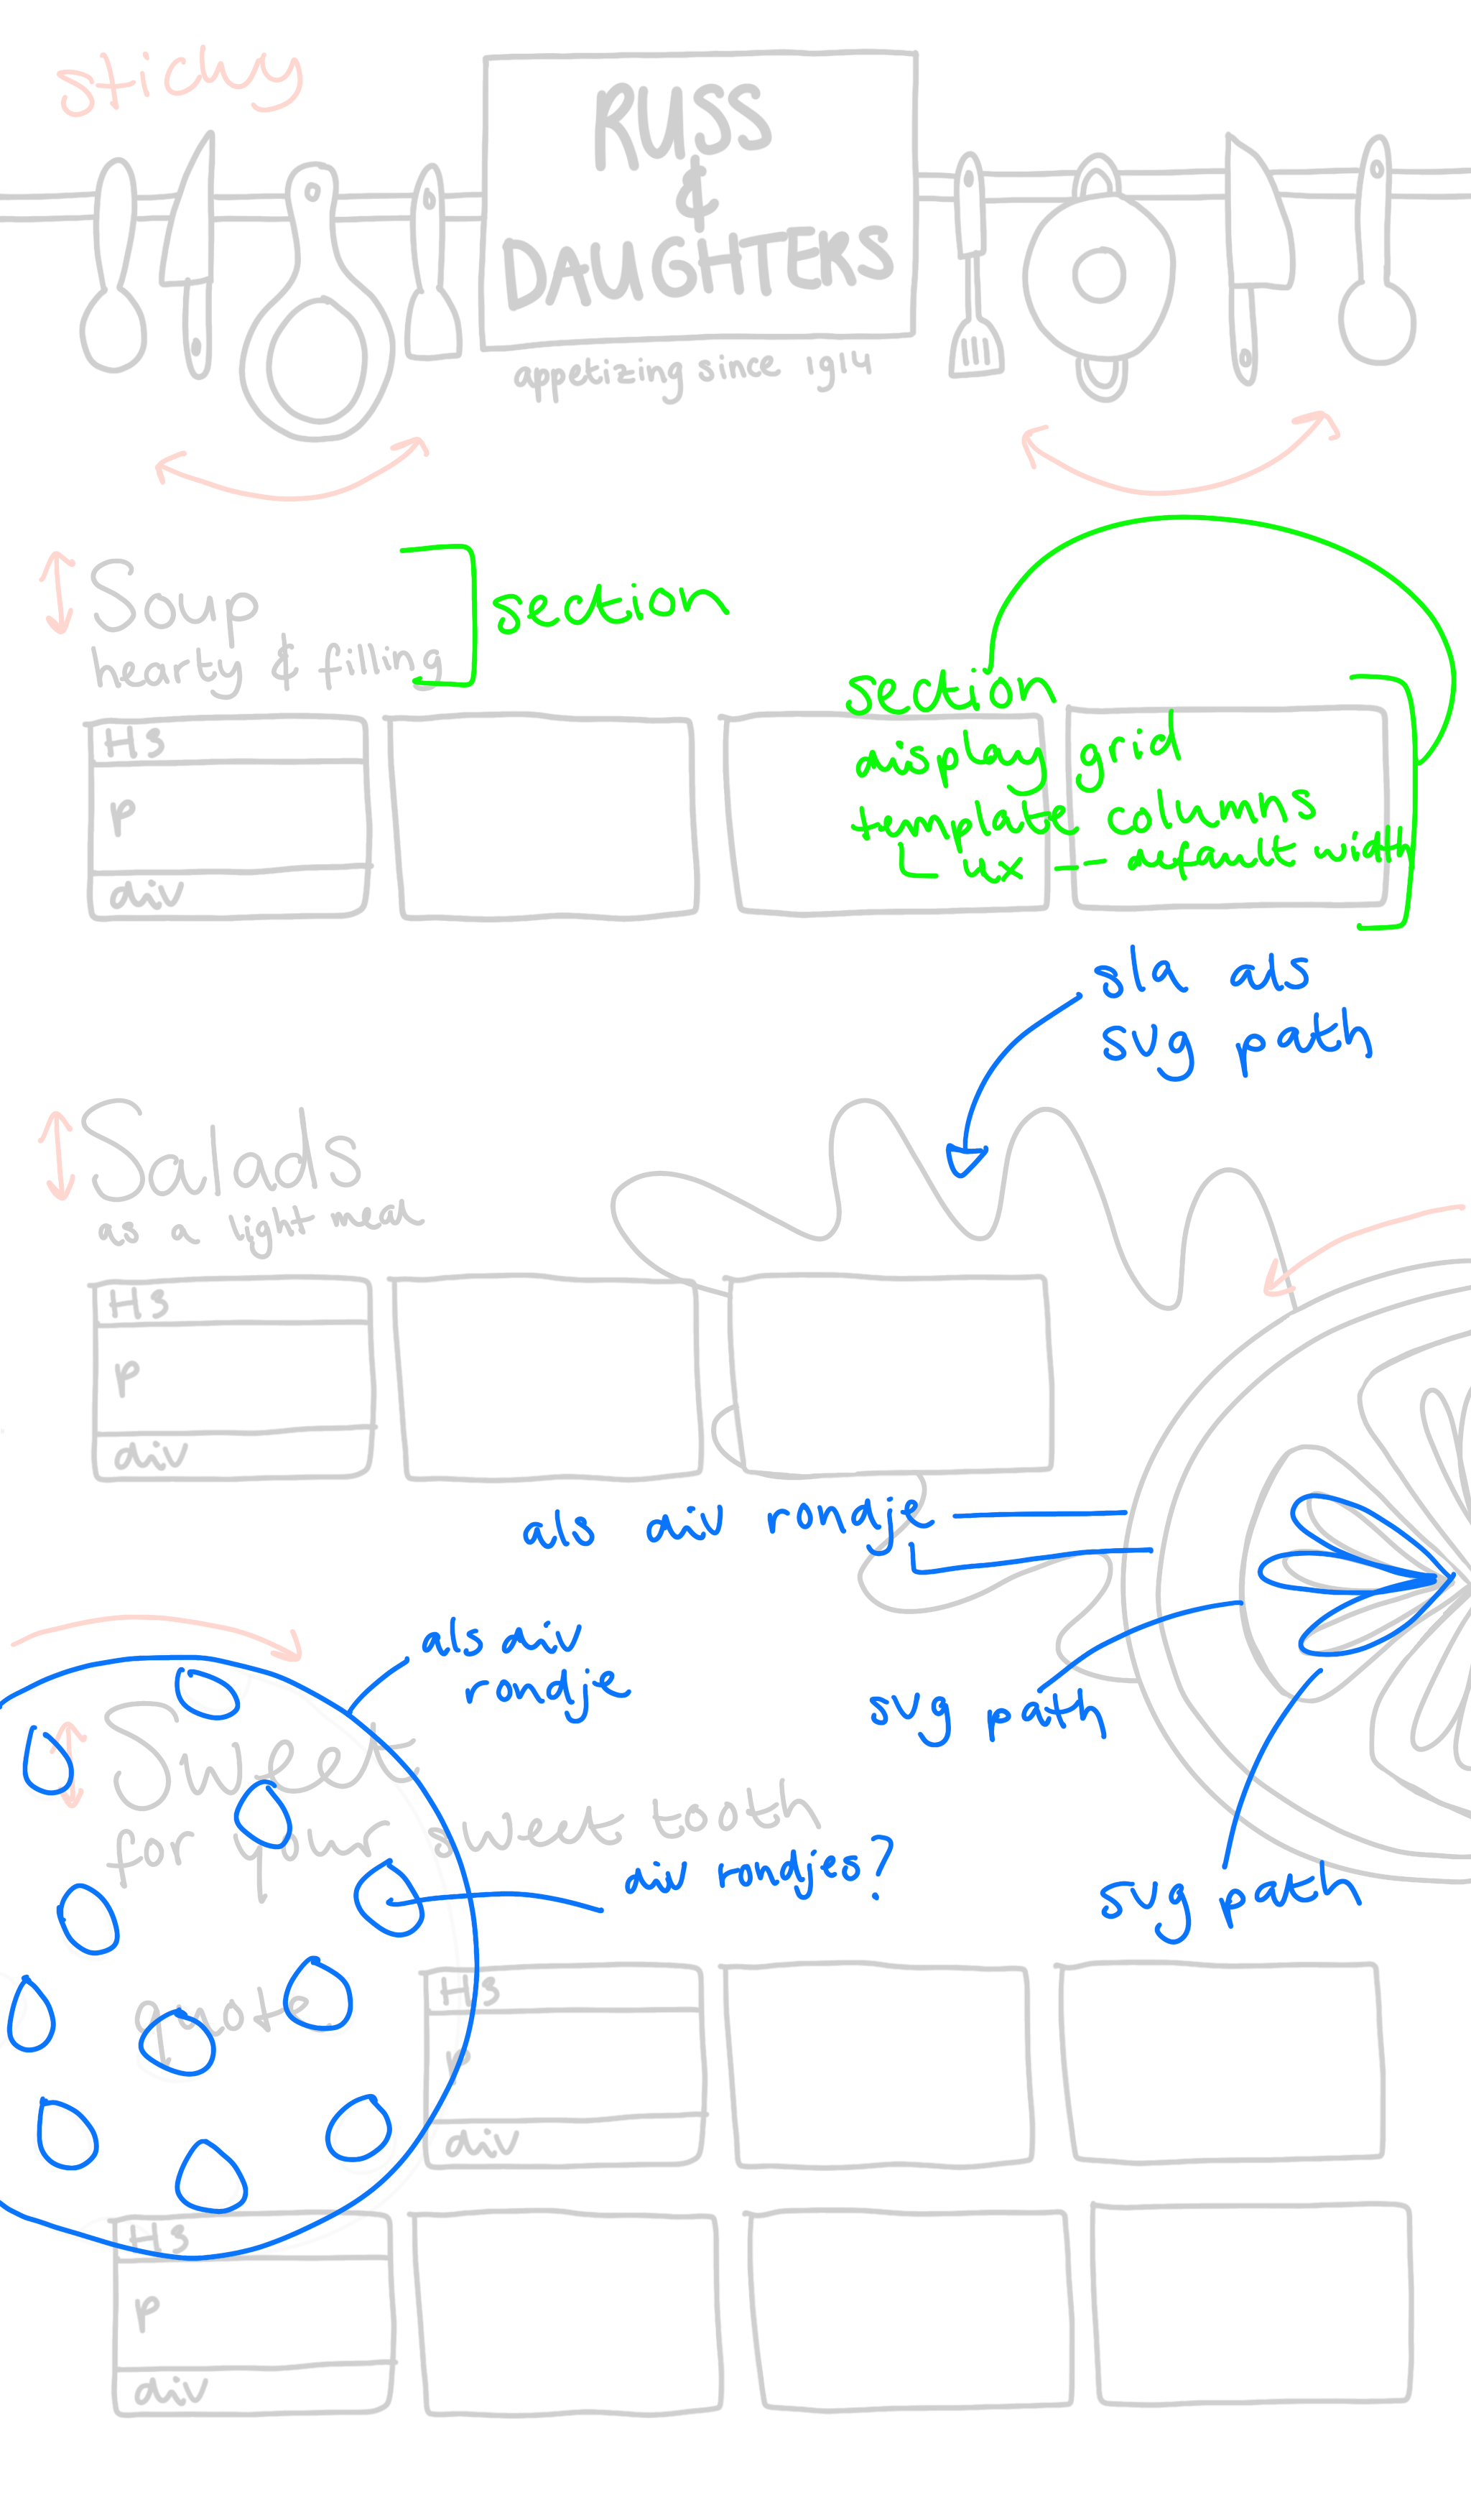 sticky
RUSS
&
DAUGHTERS
appetizing since 1914
Soup
hearty & filling
section
section
display grid
template columns
↳ ux - aantal
H3
p
div
sla als
svg path
Salads
as a light meal
H3
p
div
als div rondje
als div
rondje
svg path
svg path
Sweet
for your sweet tooth
div rondjes?
quote
H3
p
div
H3
p
div